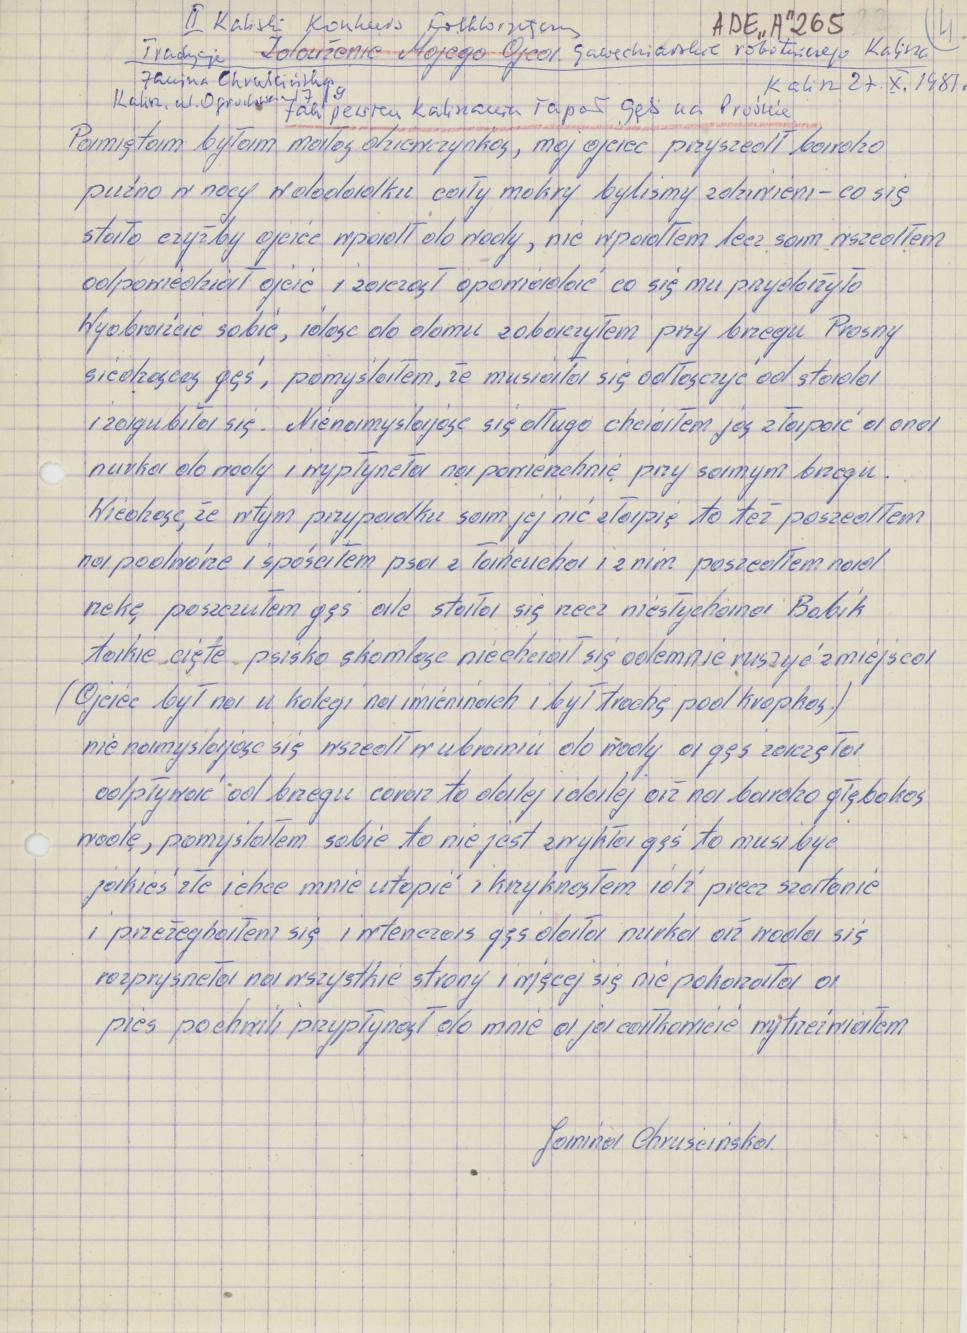 II Kaliski Konkurs Folklorystyczny
ADE „A" 265
14
Tradycje Zdarzenie Mojego Ojca. gawędziarskie robotniczego Kalisza
Janina Chruścińska
Kalisz 27.X.1981r.
Kalisz, ul. Ogrodowa
Jak pewien Kaliszanin łapał gęś na Prośnie
Pamiętam byłam małą dziewczynką, mój ojciec przyszedł bardzo
puźno w nocy wdodadku cały mokry byliśmy zdziwieni – co się
stało czyżby ojciec wpadł do wody, nie wpadłem lecz sam wszedłem
odpowiedział ojciec i zaczął opowiadać co się mu przydarzyło
Wyobraźcie sobie, idąc do domu zobaczyłem przy brzegu Prosny
siedzącą gęś, pomyślałem, że musiała się odłączyć od stada
i zagubiła się. Nienamyślając się długo chciałem ją złapać a ona
nurka do wody i wypłyneła na powierzchnię przy samym brzegu.
Widząc, że wtym przypadku sam jej nie złapię to też poszedłem
na podwórze i spóściłem psa z łańcucha i z nim poszedłem nad
rzekę poszczułem gęś ale stała się rzecz niesłychana Bobik
takie cięte psisko skomląc niechciał się odemnie ruszyć z miejsca
(Ojciec był na u kolegi na imieninach i był trochę pod kropką.)
nie namyślając się wszedł w ubraniu do wody a gęś zaczęła
odpływać od brzegu coraz to dalej i dalej aż na bardzo głęboką
wodę, pomyślałem sobie to nie jest zwykła gęś to musi być
jakieś złe i chce mnie utopić i krzyknąłem idź precz szatanie
i przeżegnałem się i wtenczas gęś dała nurka aż woda się
rozprysneła na wszystkie strony i więcej się nie pokazała a
pies pochwili przypłynął do mnie a ja całkowicie wytrzeźwiałem
Janina Chruścińska.